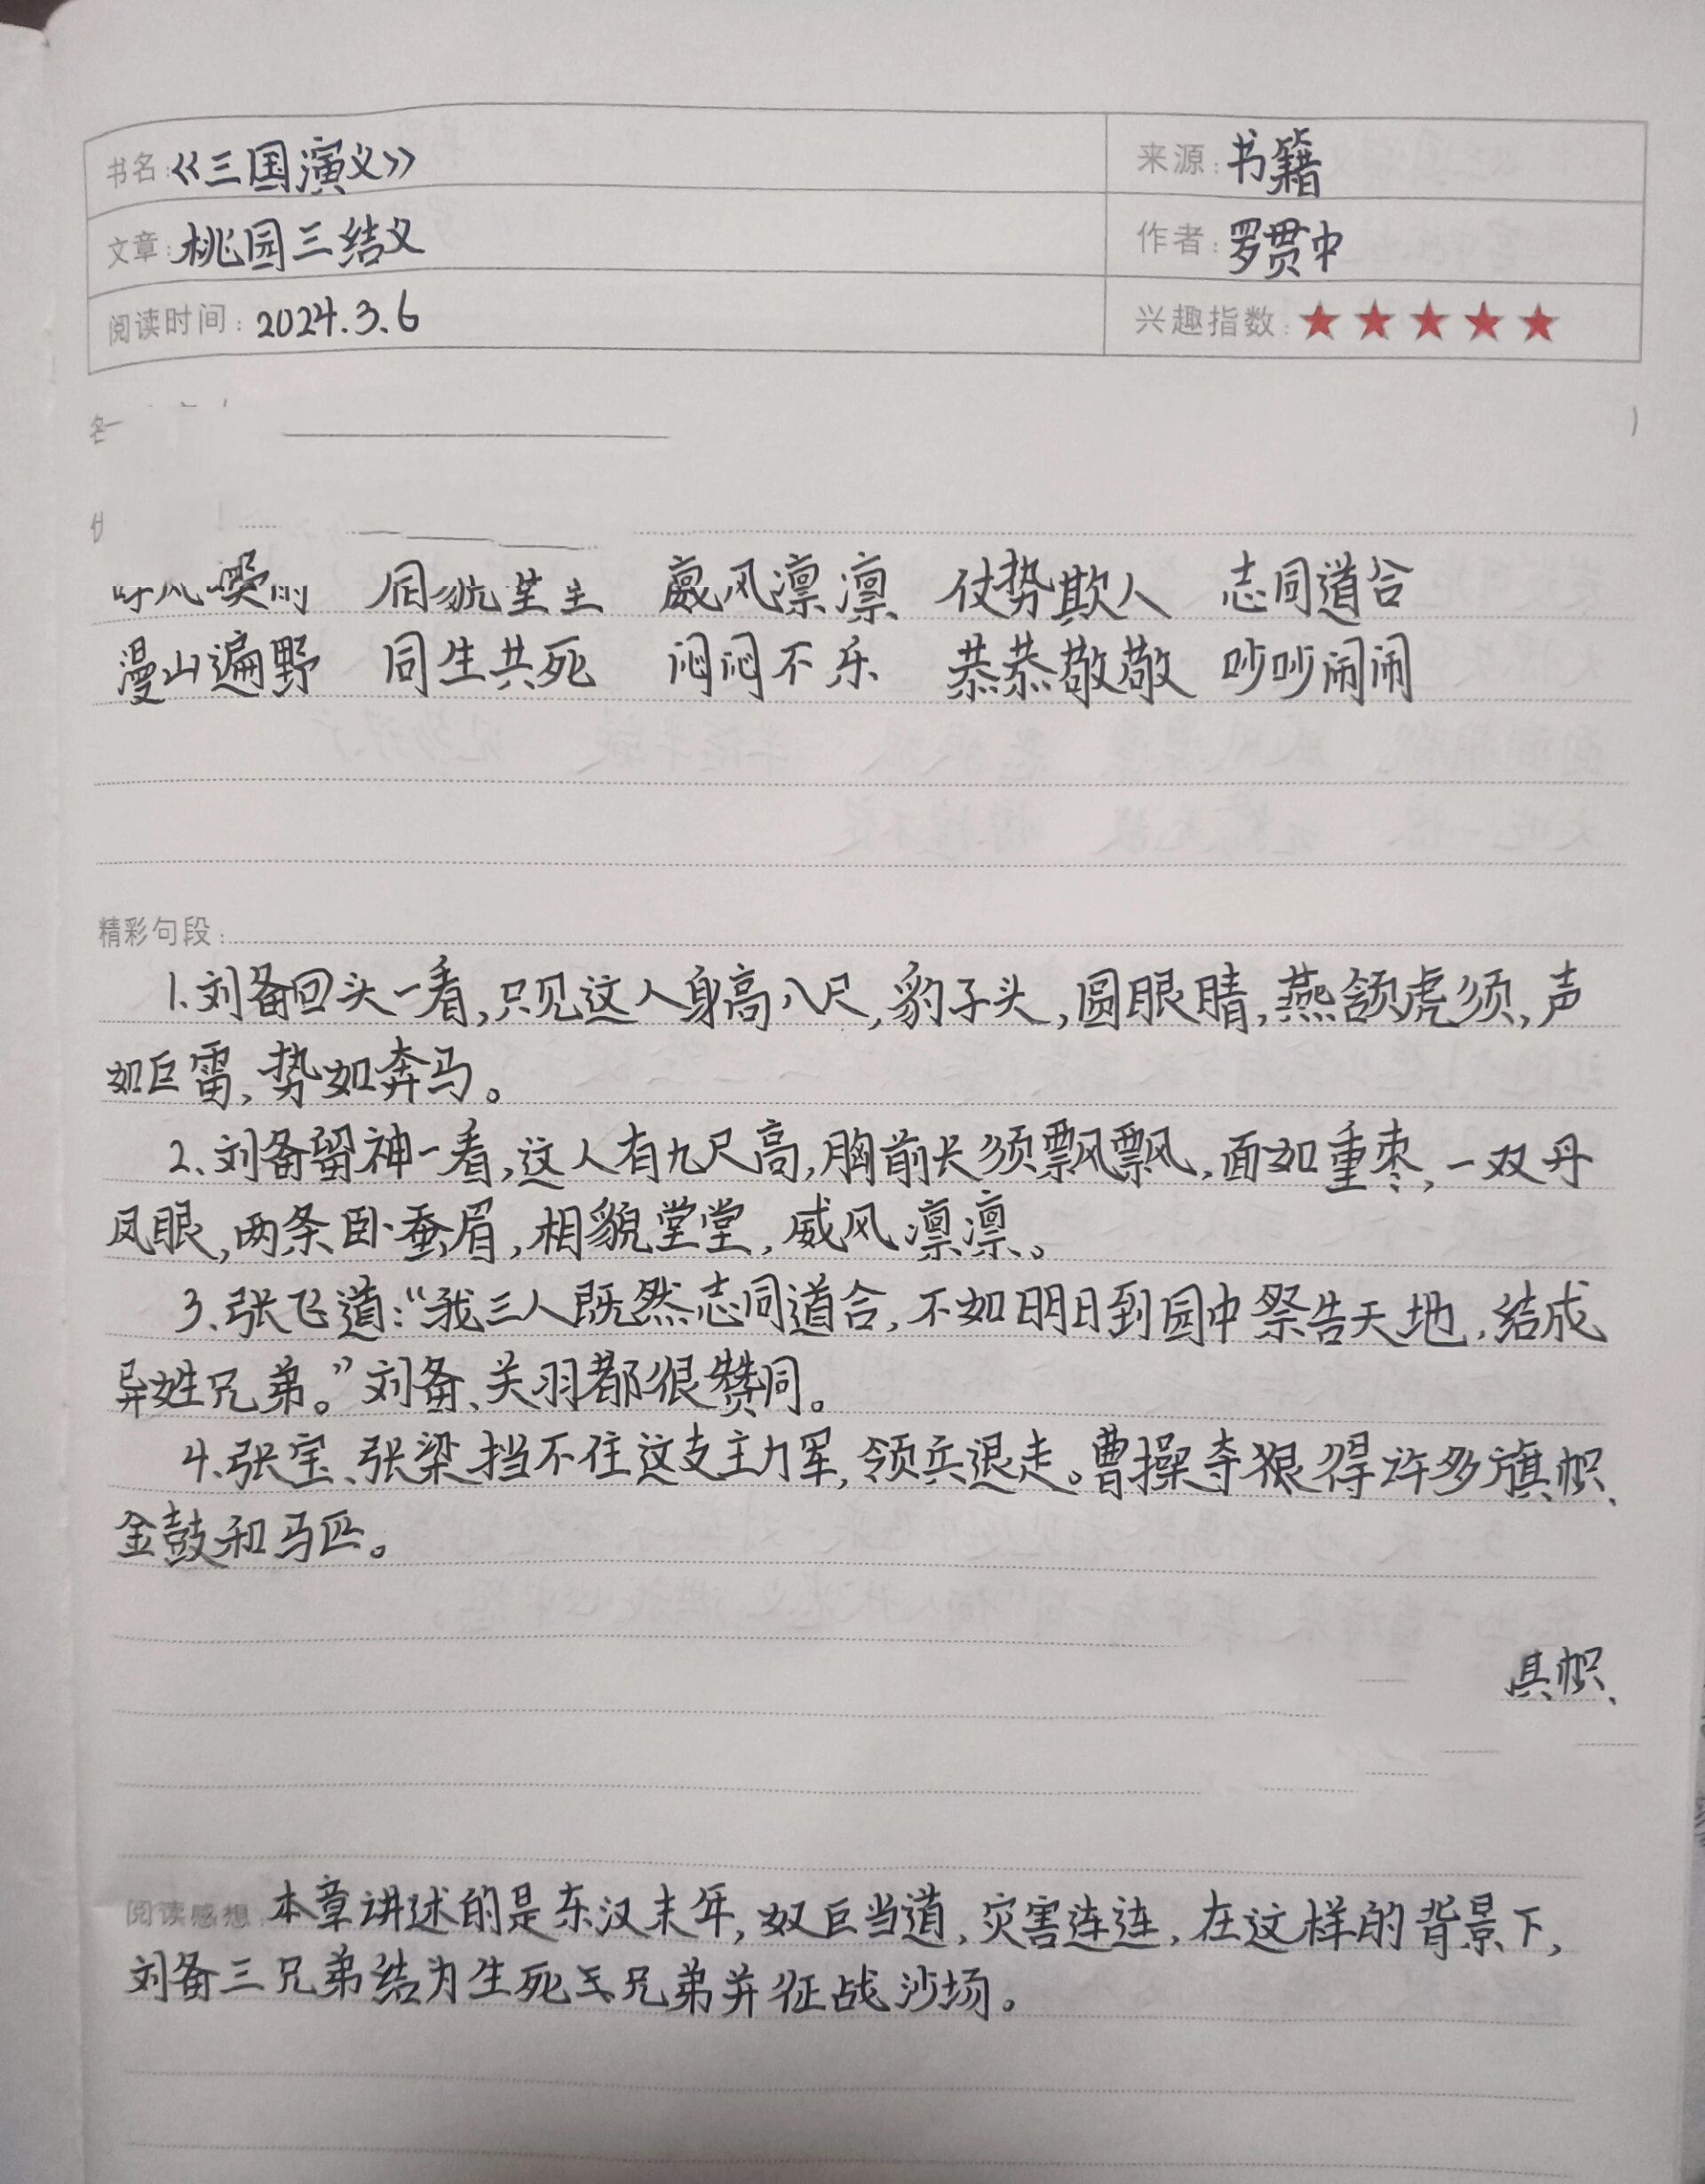 书名:《三国演义》 来源:书籍
文章:桃园三结义 作者:罗贯中
阅读时间:2024.3.6 兴趣指数:★★★★★
威风凛凛 仗势欺人 志同道合
漫山遍野 同生共死 闷闷不乐 恭恭敬敬 吵吵闹闹
精彩句段:
1.刘备回头一看,只见这人身高八尺,豹子头,圆眼睛,燕颔虎须,声
如巨雷,势如奔马。
2、刘备留神一看,这人有九尺高,胸前长须飘飘,面如重枣,一双丹
凤眼,两条卧蚕眉,相貌堂堂,威风凛凛。
3、张飞道:“我三人既然志同道合,不如明日到园中祭告天地,结成
异姓兄弟。”刘备、关羽都很赞同。
4、张宝、张梁挡不住这支主力军,领兵退走。曹操夺狠得许多旗帜、
金鼓和马匹。
帜、
阅读感想:本章讲述的是东汉末年,奴巨当道,灾害连连,在这样的背景下,
刘备三兄弟结为生死兄弟并征战沙场。